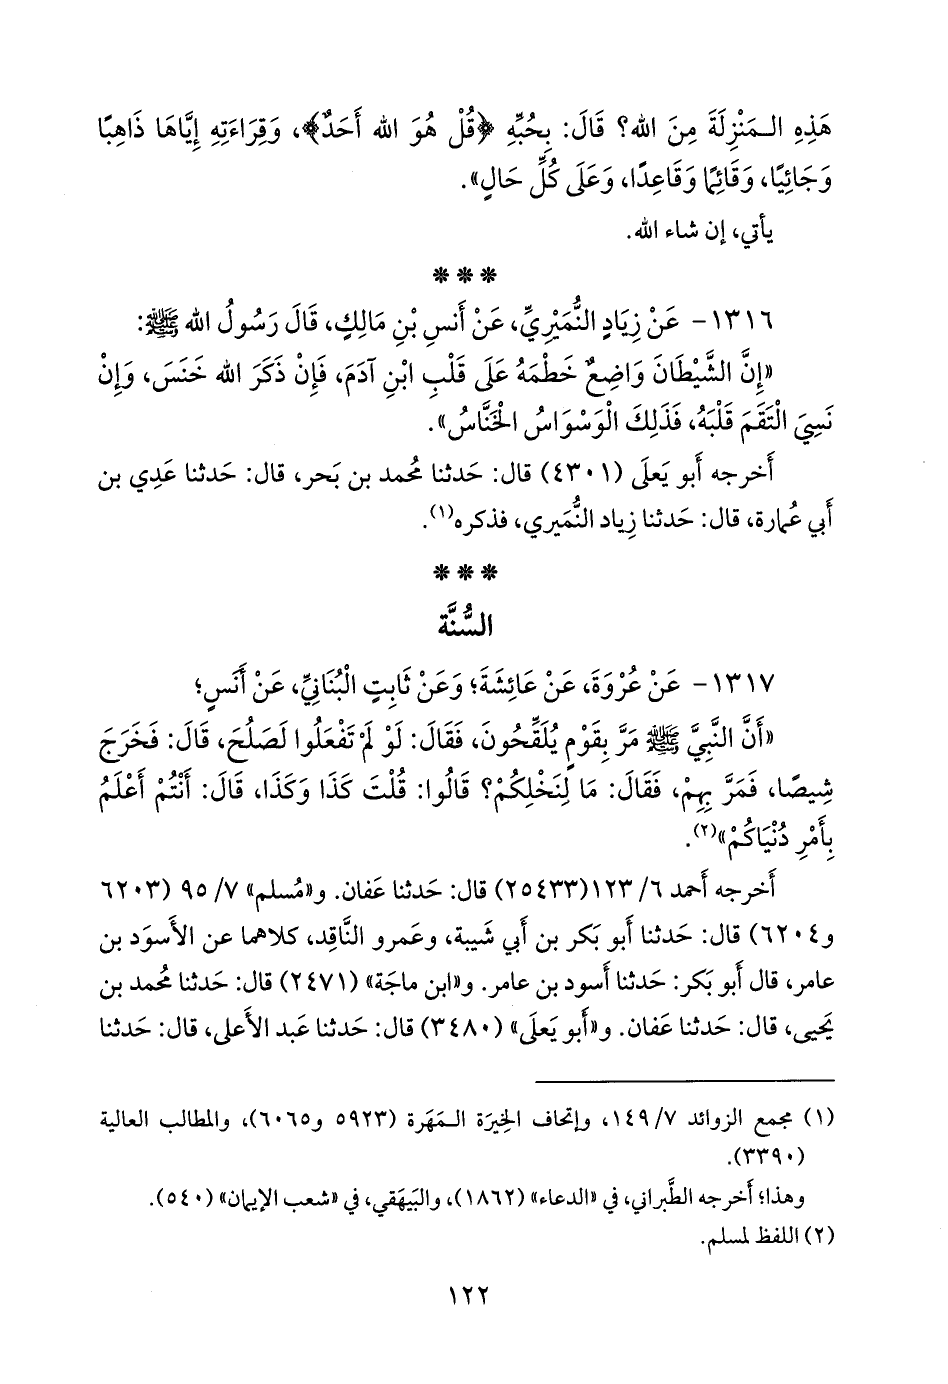 هَذِهِ الـمَنْزِلَةَ مِنَ الله؟ قَالَ: بِحُبِّهِ ﴿قُلْ هُوَ الله أَحَدٌ﴾، وَقِرَاءَتِهِ إِيَّاهَا ذَاهِبًا
وَجَائِيًا، وَقَائِمًا وَقَاعِدًا، وَعَلَى كُلِّ حَالٍ».
يأتي، إن شاء الله.
* * *
١٣١٦- عَنْ زِيَادٍ النُّمَيْرِيِّ، عَنْ أَنسِ بْنِ مَالِكٍ، قَالَ رَسُولُ الله ﷺ:
«إِنَّ الشَّيْطَانَ وَاضِعٌ خَطْمَهُ عَلَى قَلْبِ ابْنِ آدَمَ، فَإِنْ ذَكَرَ الله خَنَسَ، وَإِنْ
نَسِيَ الْتَقَمَ قَلْبَهُ، فَذَلِكَ الْوَسْوَاسُ الْخَنَّاسُ».
أَخرجه أَبو يَعلَى (٤٣٠١) قال: حَدثنا مُحمد بن بَحر، قال: حَدثنا عَدِي بن
أَبي عُمارة، قال: حَدثنا زِياد النُّمَيري، فذكره(١).
* * *
السُّنَّة
١٣١٧- عَنْ عُرْوَةَ، عَنْ عَائِشَةَ؛ وَعَنْ ثَابِتٍ الْبُنَانِيِّ، عَنْ أَنَسٍ؛
«أَنَّ النَّبِيَّ ﷺ مَرَّ بِقَوْمٍ يُلَقِّحُونَ، فَقَالَ: لَوْ لَمْ تَفْعَلُوا لَصَلُحَ، قَالَ: فَخَرَجَ
شِيصًا، فَمَرَّ بِهِمْ، فَقَالَ: مَا لِنَخْلِكُمْ؟ قَالُوا: قُلْتَ كَذَا وَكَذَا، قَالَ: أَنْتُمْ أَعْلَمُ
بِأَمْرِ دُنْيَاكُمْ»(٢).
أَخرجه أَحمد ٦/ ١٢٣(٢٥٤٣٣) قال: حَدثنا عَفان. و«مُسلم» ٧/ ٩٥ (٦٢٠٣
و٦٢٠٤) قال: حَدثنا أَبو بَكر بن أَبي شَيبة، وعَمرو النَّاقِد، كلاهما عن الأَسوَد بن
عامر، قال أَبو بَكر: حَدثنا أَسود بن عامر. و«ابن ماجَة» (٢٤٧١) قال: حَدثنا مُحمد بن
يَحيى، قال: حَدثنا عَفان. و«أَبو يَعلَى» (٣٤٨٠) قال: حَدثنا عَبد الأَعلى، قال: حَدثنا
(١) مجمع الزوائد ٧/ ١٤٩، وإتحاف الخِيرَة الـمَهَرة (٥٩٢٣ و٦٠٦٥)، والمطالب العالية
(٣٣٩٠).
وهذا؛ أَخرجه الطَّبراني، في «الدعاء» (١٨٦٢)، والبَيهَقي، في «شعب الإيمان» (٥٤٠).
(٢) اللفظ لمسلم.
١٢٢